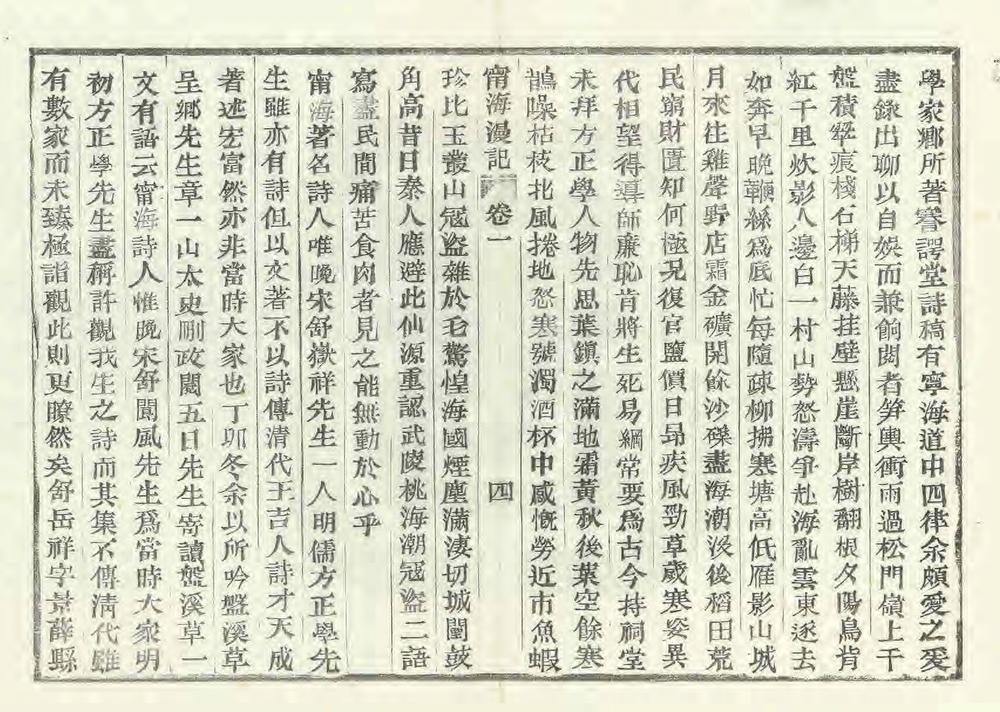 學家鄉所著謇諤堂詩稿有寧海道中四律余頗愛之爰
盡錄出聊以自娛而兼餉閱者笋輿衝雨過松門嶺上千
盤積翠痕棧石梯天藤挂壁懸崖斷岸樹翻根夕陽鳥背
紅千里炊影人邊白一村山勢怒濤爭赴海亂雲東逐去
如奔早晚鞭絲爲底忙每隨疎柳拂寒塘高低雁影山城
月來往雞聲野店霜金礦開餘沙磧盡海潮沒後稻田荒
民窮財匱知何極況復官鹽價日昂疾風勁草歲寒姿異
代相望得導師廉恥肯將生死易綱常要爲古今持祠堂
未拜方正學人物先思葉鎮之滿地霜黃秋後葉空餘寒
鵲噪枯枝北風捲地怒寒號濁酒杯中感慨勞近市魚蝦
甯海漫記 卷一 四
珍比玉叢山冦盜雜於毛驚惶海國煙塵滿淒切城闉鼓
角高昔日秦人應避此仙源重認武陵桃海潮冦盜二語
寫盡民間痛苦食肉者見之能無動於心乎
甯海著名詩人唯晚宋舒嶽祥先生一人明儒方正學先
生雖亦有詩但以文著不以詩傳清代王吉人詩才天成
著述宏富然亦非當時大家也丁卯冬余以所吟盤溪草
呈鄉先生章一山太史刪政閱五日先生寄讀盤溪草一
文有語云甯海詩人惟晚宋舒閬風先生爲當時大家明
初方正學先生盡稱許觀我生之詩而其集不傳清代雖
有數家而未臻極詣觀此則更瞭然矣舒岳祥字景薛縣